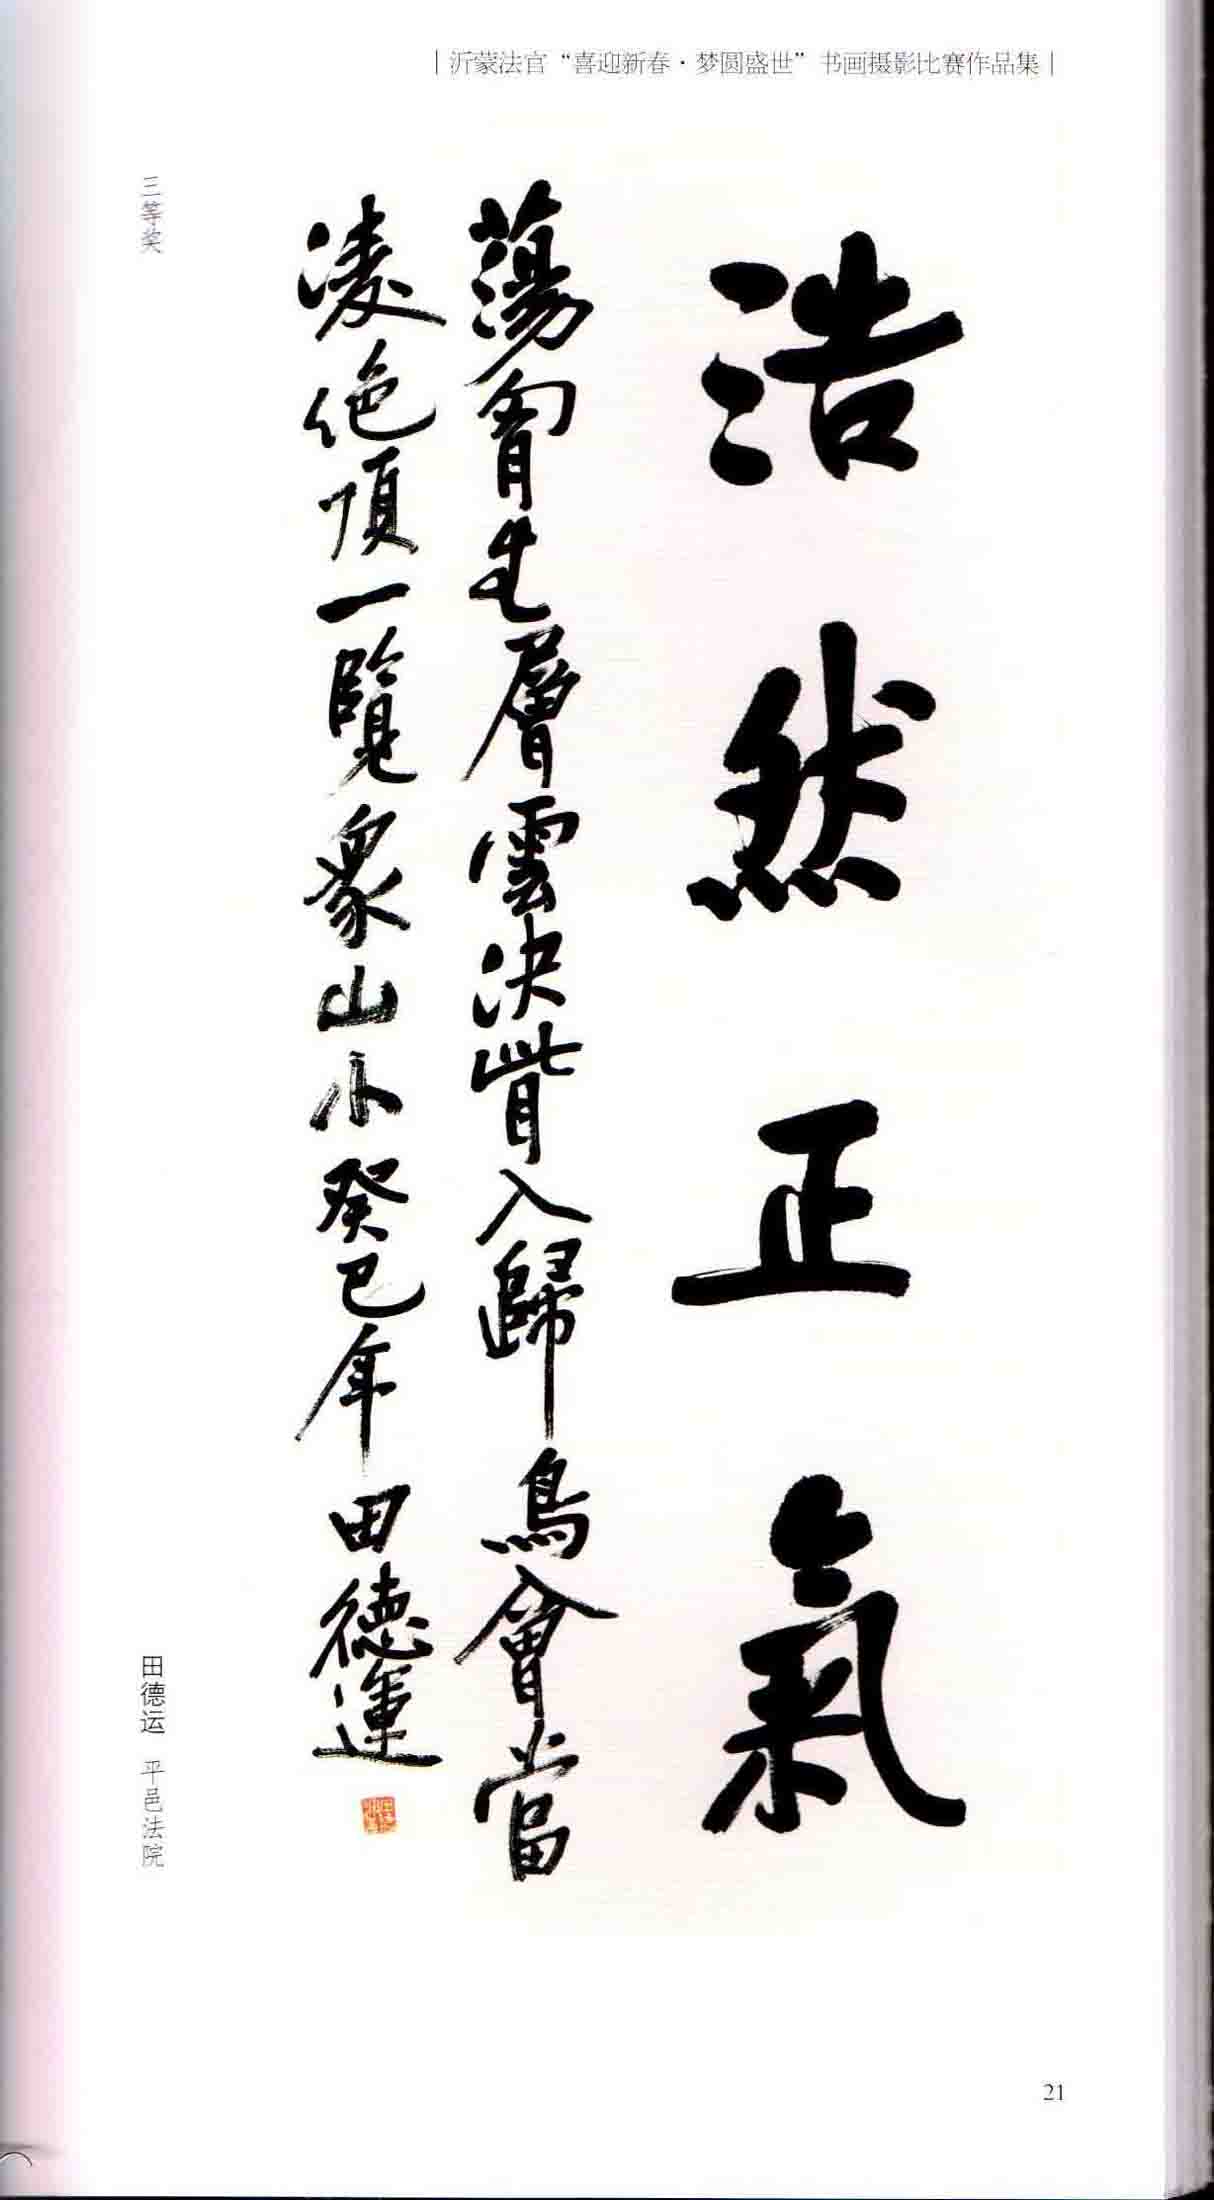 沂蒙法官“喜迎新春·梦圆盛世”书画摄影比赛作品集
浩然正氣
蕩胷生層雲決眥入歸鳥會當
凌絕頂一覽衆山小癸巳年田德運
三等奖
田德运 平邑法院
21